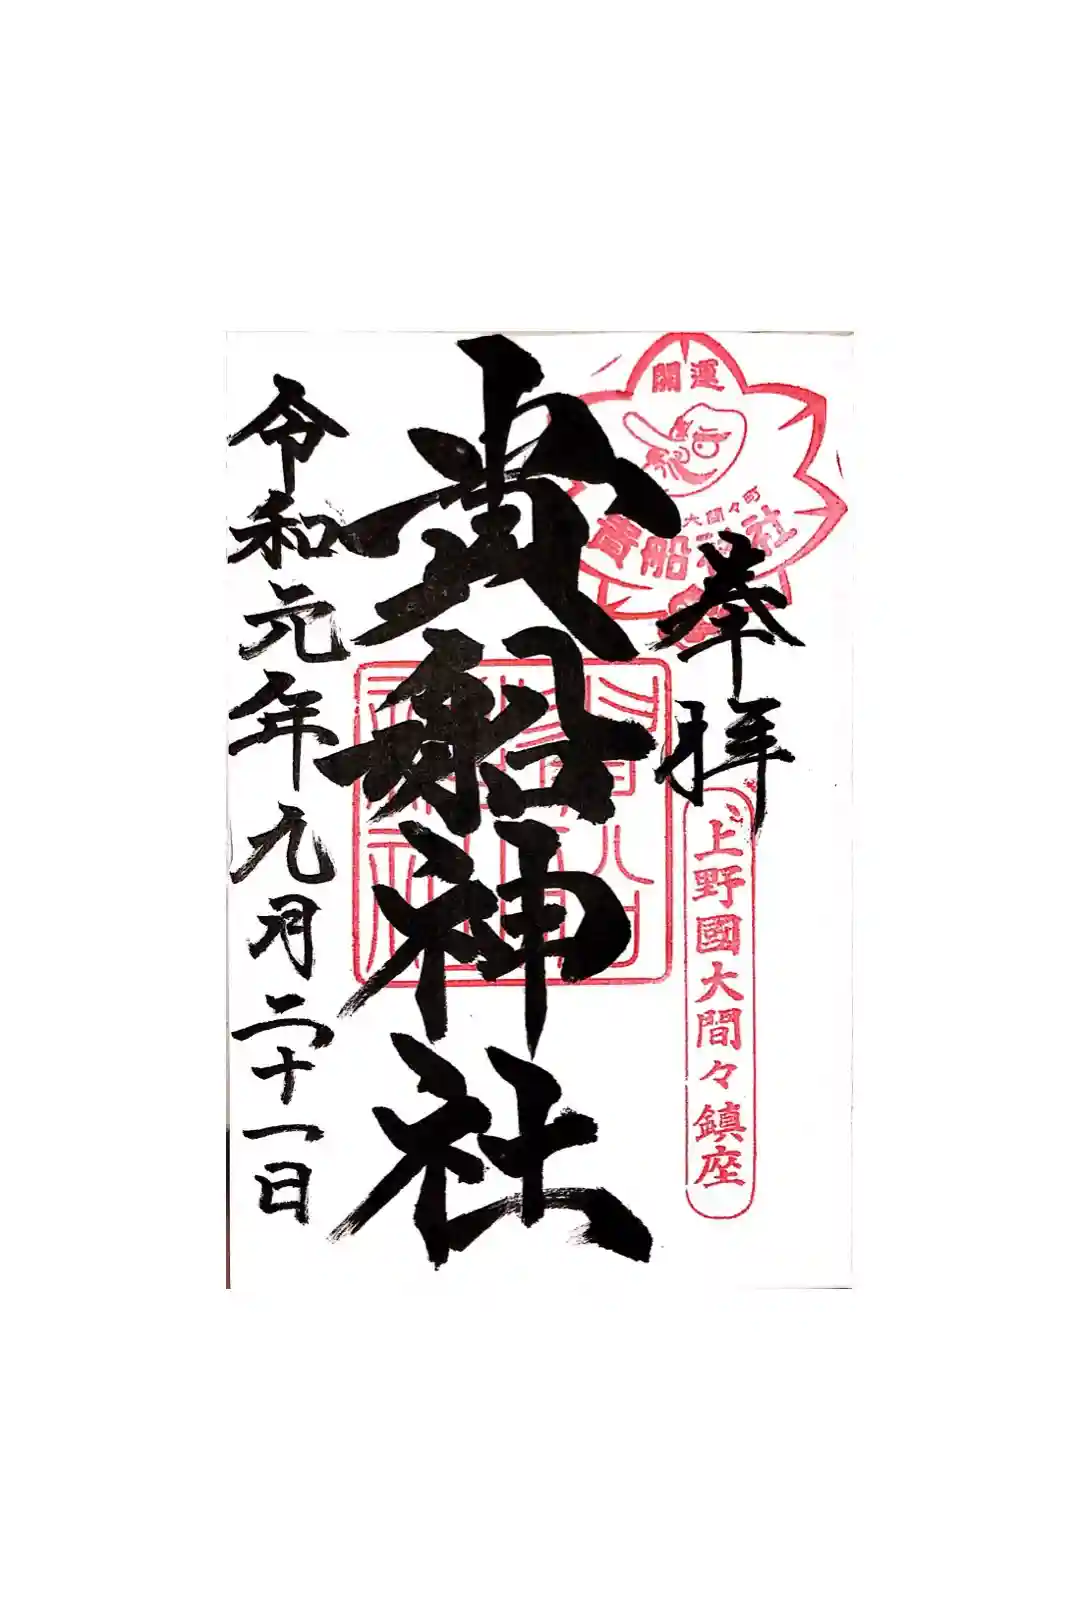 開運
大間々町
貴船神社
奉拝
上野國大間々鎮座
貴船神社
令和元年九月二十一日